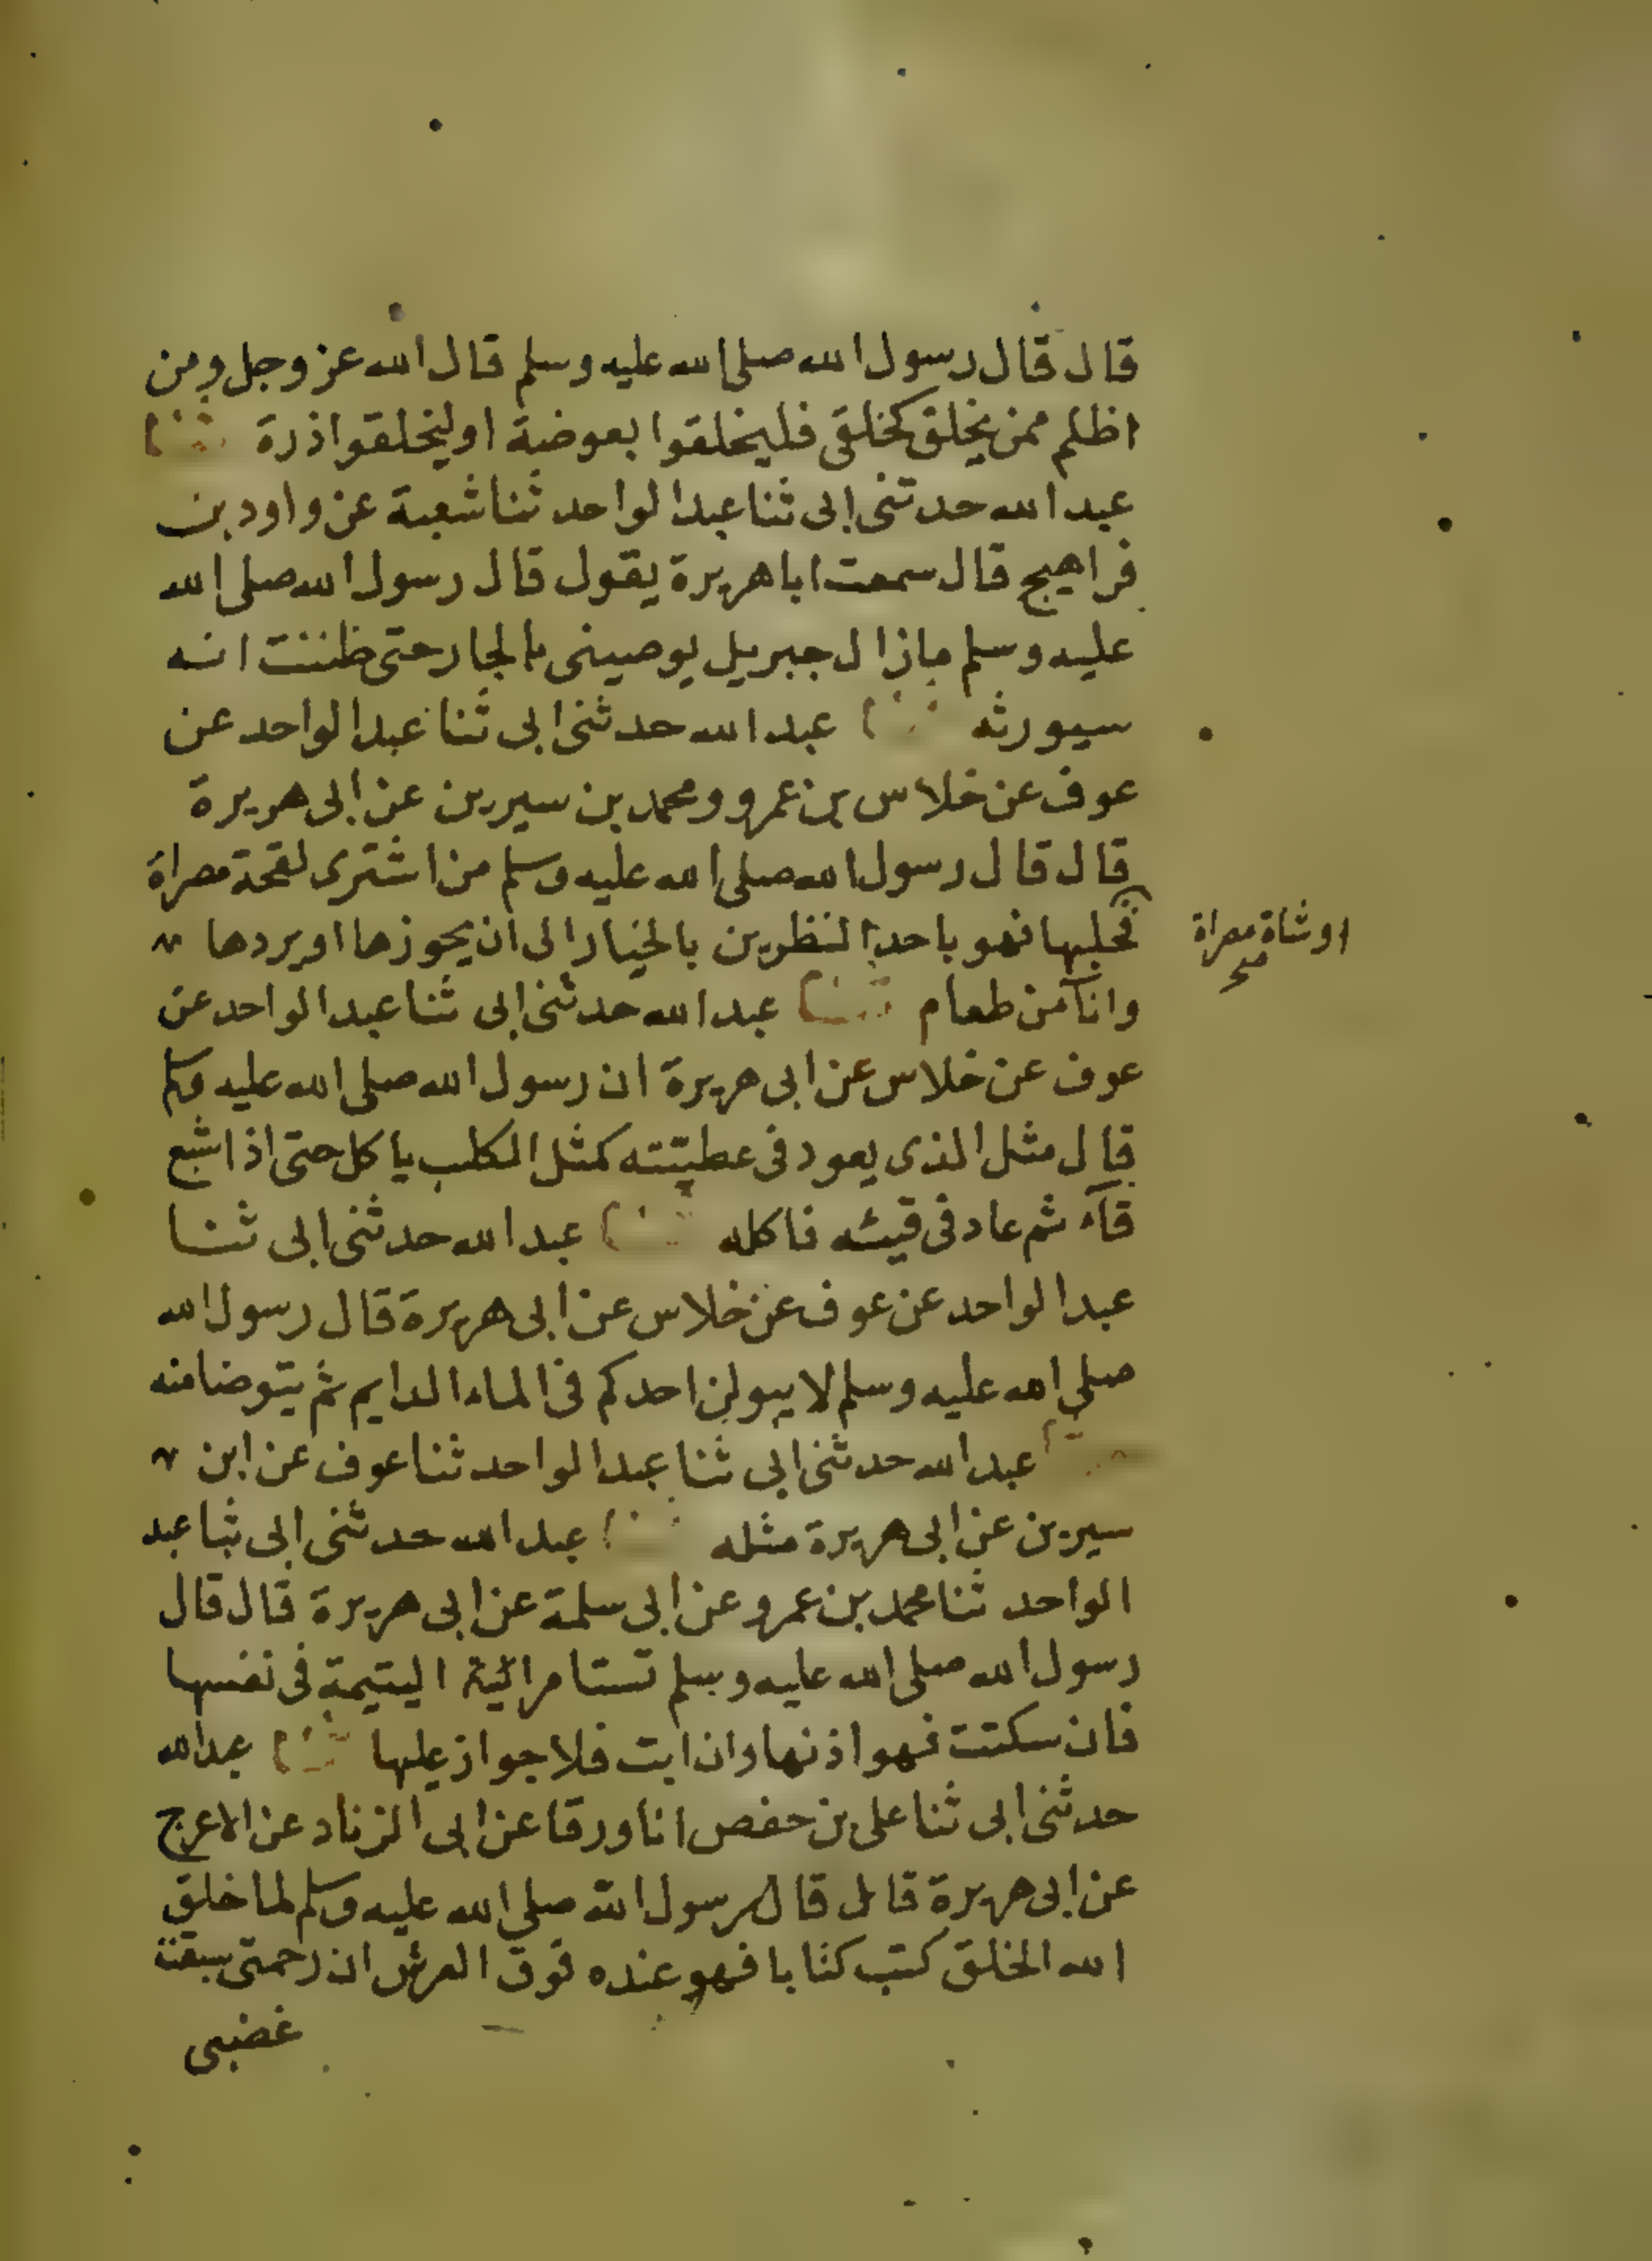 قال قال رسول الله صلى الله عليه وسلم قال الله عز وجل ومن
اظلم ممن يخلق كخلقى فليخلقوا بعوضة اوليخلقوا ذرة ثنا
عبد الله حدثنى ابى ثنا عبد الواحد ثنا شعبة عن داود بن
فراهيج قال سمعت ابا هريرة يقول قال رسول الله صلى الله
عليه وسلم مازال جبريل يوصينى بالجار حتى ظننت انه
سيورثه ثنا عبد الله حدثنى ابى ثنا عبد الواحد عن
عوف عن خلاس بن عمرو ومحمد بن سيرين عن ابى هريرة
قال قال رسول الله صلى الله عليه وسلم من اشترى لقحة مصراة
اوشاة مصراة صح
فحلبها فهو باحد النظرين بالخيار الى ان يحوزها او يردها
واناء من طعام ثنا عبد الله حدثنى ابى ثنا عبد الواحد عن
عوف عن خلاس عن ابى هريرة ان رسول الله صلى الله عليه وسلم
قال مثل الذى يعود فى عطيته كمثل الكلب ياكل حتى اذا شبع
قآء ثم عاد فى قيئه فاكله ثنا عبد الله حدثنى ابى ثنا
عبد الواحد عن عوف عن خلاس عن ابى هريرة قال رسول الله
صلى الله عليه وسلم لا يبولن احدكم فى الماء الدايم ثم يتوضا منه
ثنا عبد الله حدثنى ابى ثنا عبد الواحد ثنا عوف عن ابن
سيرين عن ابى هريرة مثله ثنا عبد الله حدثنى ابى ثنا عبد
الواحد ثنا محمد بن عمرو عن ابى سلمة عن ابى هريرة قال قال
رسول الله صلى الله عليه وسلم تستامر اليتيمة فى نفسها
فان سكتت فهو اذنها وان ابت فلا جواز عليها ثنا عبد الله
حدثنى ابى ثنا على بن حفص انا ورقا عن ابى الزناد عن الاعرج
عن ابى هريرة قال قال رسول الله صلى الله عليه وسلم لما خلق
الله الخلق كتب كتابا فهو عنده فوق العرش ان رحمتى سبقت
غضبى